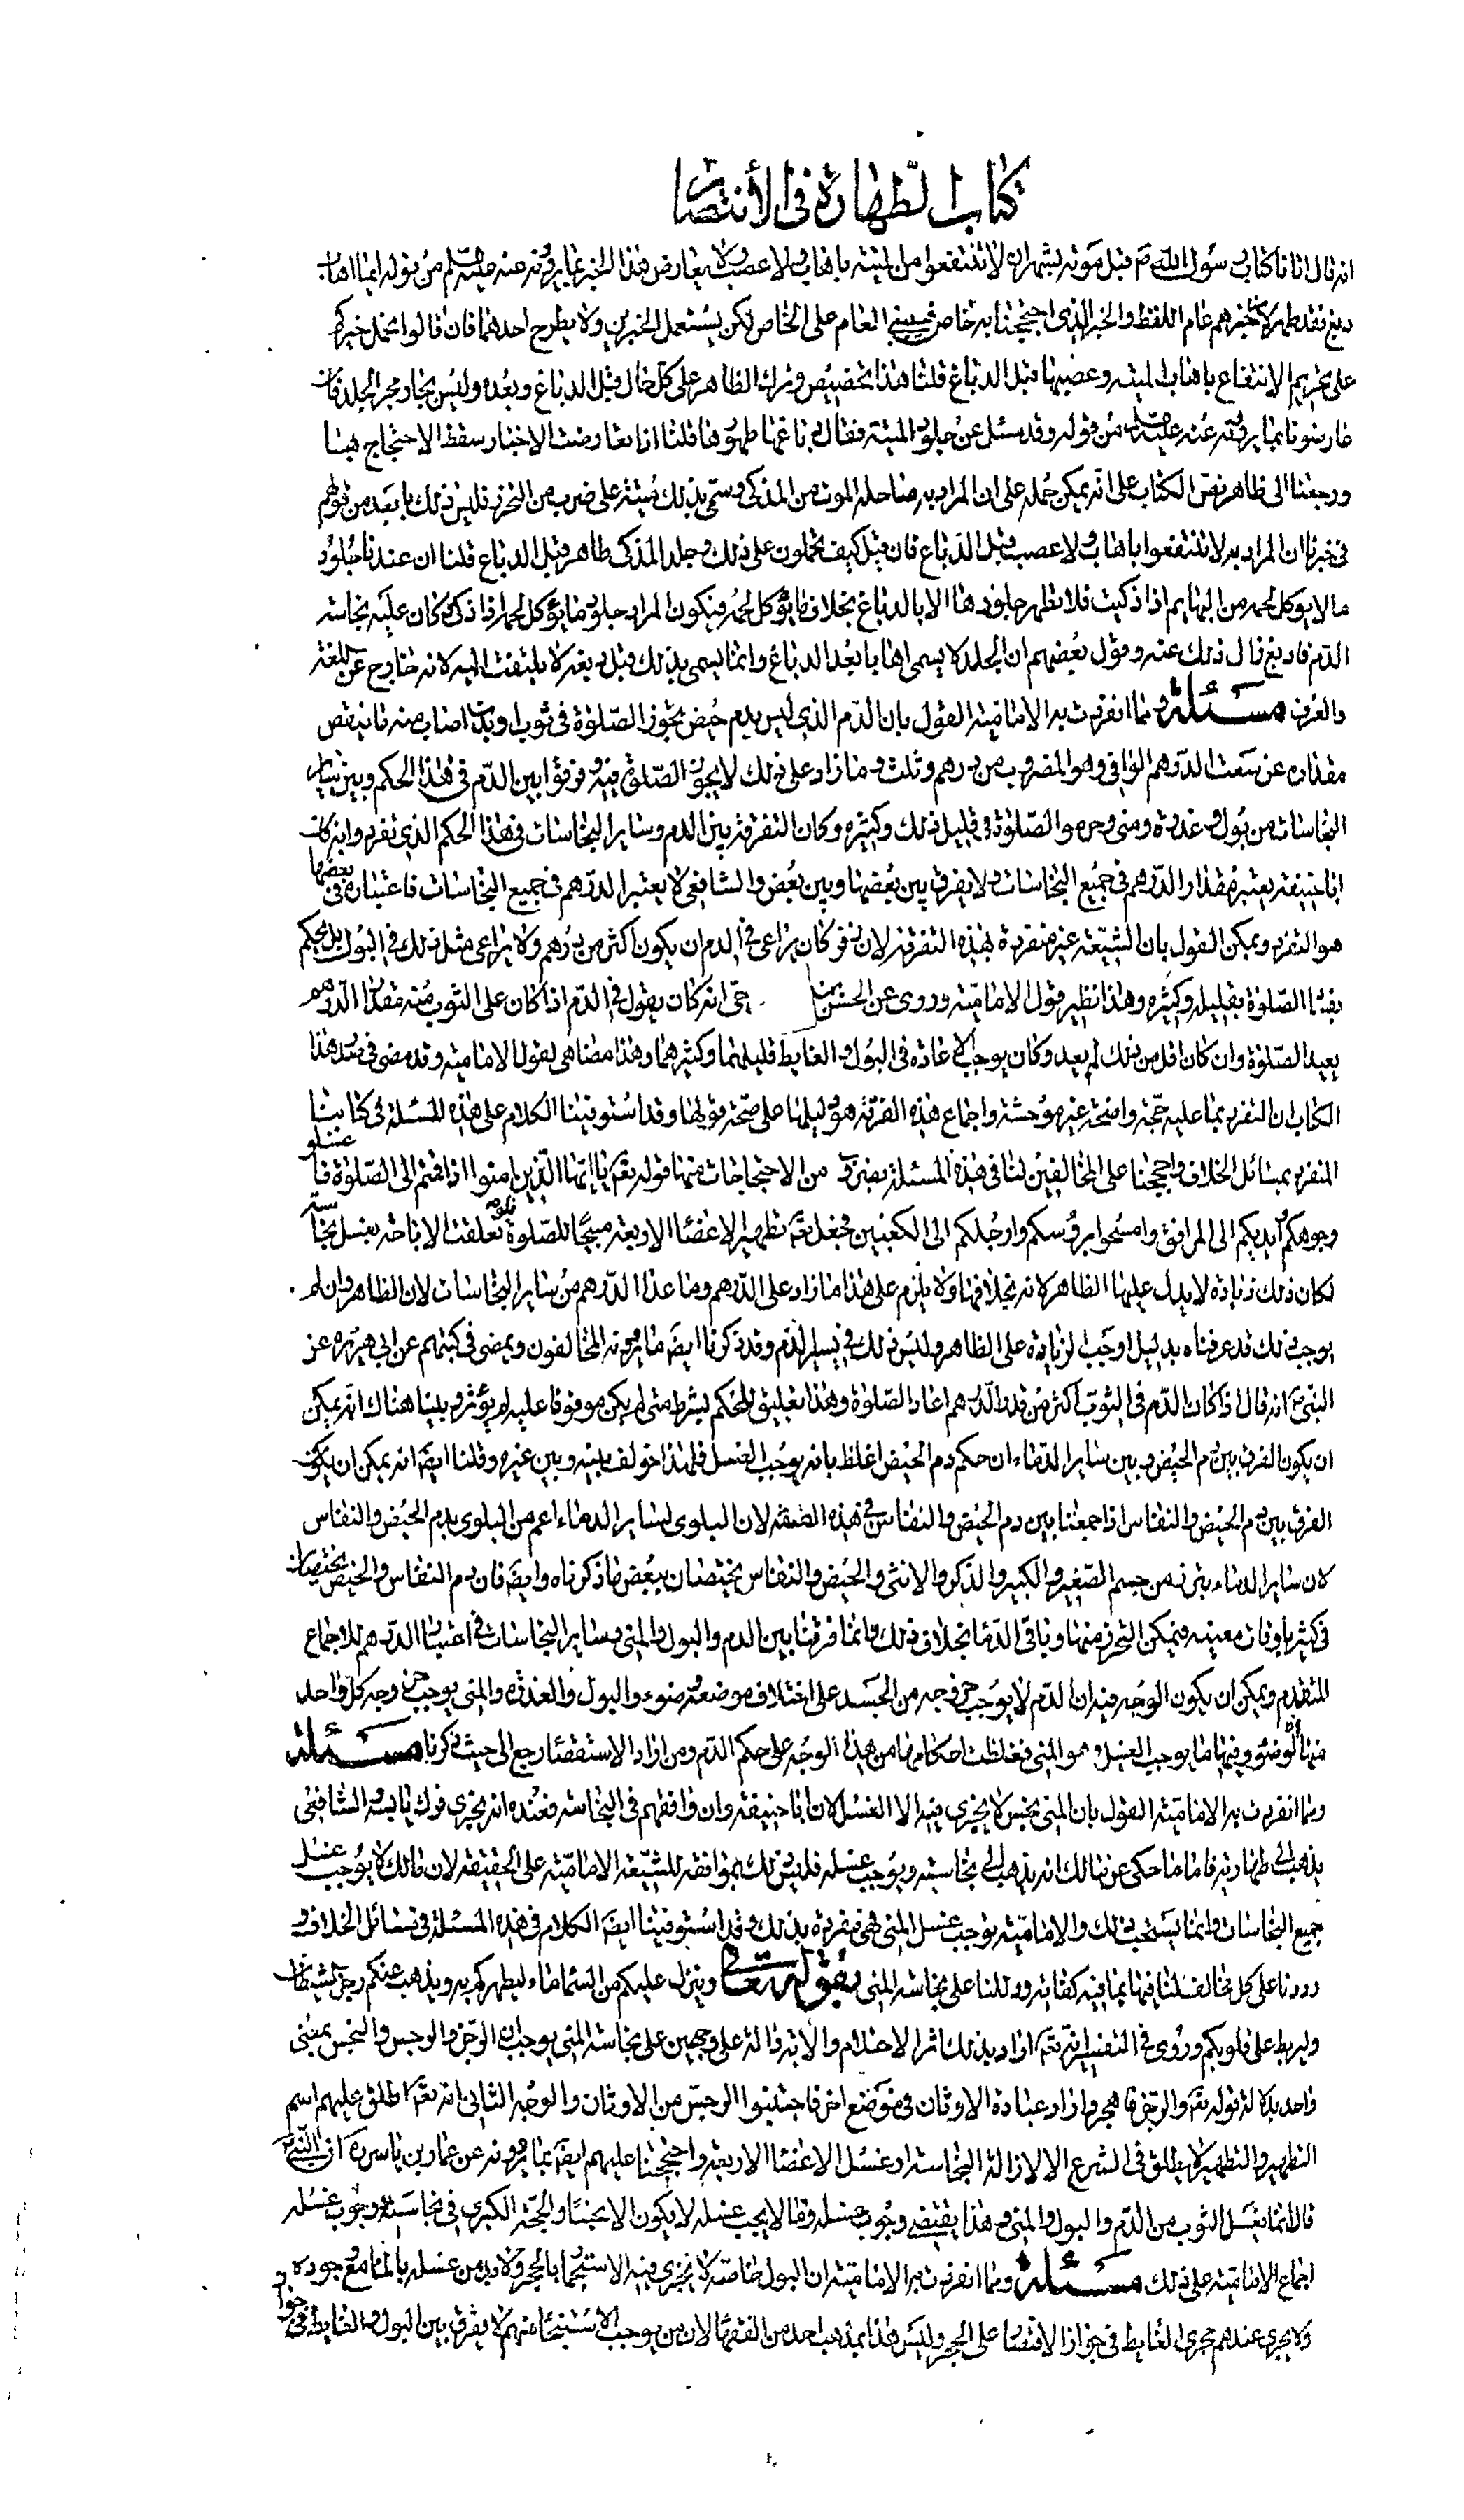 كتاب الطهارة فى الأنتصار
انه قال اتانا كتاب رسول الله ص قبل موته بشهر ان لا تنتفعوا من الميتة باهاب ولا عصب ولا يعارض هذا الخبر بما يروونه عنه ع من قوله ايما اهاب
دبغ فقد طهر لان خبرهم عام اللفظ والخبر الذى احتججنا به خاص فيبنى العام على الخاص لكن يستعمل الخبرين ولا يطرح احدهما فان قالوا نحمل خبركم
على تحريم الانتفاع باهاب الميتة وعصبها قبل الدباغ قلنا هذا تخصيص وترك الظاهر على كل حال قبل الدباغ وبعده وليس بجار مجر الجلد فان
عارضونا بما يروونه عنه من قوله وقد سئل عن جلود الميتة فقال دباغها طهورها قلنا اذا تعارضت الاخبار سقط الاحتجاج بها
ورجعنا الى ظاهر نص الكتاب على انه يمكن حمله على ان المراد به ما حله الموت من المذكى وسمى بذلك ميتة على ضرب من التحرز فليس ذلك بابعد من قولهم
فى خبرنا ان المراد به لا تنتفعوا باهاب ولا عصب قبل الدباغ فان قيل كيف تحملون على ذلك وجلد المذكى طاهر قبل الدباغ قلنا ان عندنا جلود
ما لا يوكل لحمه من البهايم اذا ذكيت فلا تطهر جلودها الا بالدباغ بخلاف ما يؤكل لحمه فيكون المراد جلود ما يؤكل لحمه اذا ذكى وكان عليه نجاسة
الدم فاذا دبغ زال ذلك عنه وقول بعضهم ان الجلد لا يسمى اهابا بعد الدباغ وانما يسمى بذلك قبل دبغه لا يلتفت اليه لانه خارج عن اللغة
والعرف مسئلة ومما انفردت به الامامية القول بان الدم الذى ليس بدم حيض يجوز الصلوة فى ثوب او بدن اصاب منه ما ينقص
مقداره عن سعة الدرهم الوافى وهو المضروب من درهم وثلث وما زاد على ذلك لا يجوز الصلوة فيه وفرقوا بين الدم فى هذا الحكم وبين ساير
النجاسات من بول وعذرة ومنى وحرموا الصلوة فى قليل ذلك وكثيره وكان التفرقة بين الدم وساير النجاسات فى هذا الحكم الذى تفرد وابه كان
ابا حنيفة يعتبر مقدار الدرهم فى جميع النجاسات ولا يفرق بين بعضها وبين بعض والشافعى لا يعتبر الدرهم فى جميع النجاسات فاعتباره فى بعضها
هو التفرد ويمكن القول بان الشيعة غير منفردة بهذه التفرقة لان زفر كان يراعى فى الدم ان يكون اكثر من درهم ولا يراعى مثل ذلك فى البول بل يحكم
بفساد الصلوة بقليله وكثيره وهذا نظير قول الامامية وروى عن الحسن بن حى انه كان يقول فى الدم اذا كان على الثوب منه مقدار الدرهم
يعيد الصلوة وان كان اقل من ذلك لم يعد وكان يوجب الاعادة فى البول والغايط قليلهما وكثيرهما وهذا مضاهى لقول الامامية وقد مضى فى صدر هذا
الكتاب ان التفرد بما عليه حجة واضحة غير موحشة واجماع هذه الفرقة هو دليلها على صحة قولها وقد استوفينا الكلام على هذه المسئلة فى كتابنا
المنفرد بمسائل الخلاف واحتججنا على المخالفين لنا فى هذه المسئلة بضروب من الاحتجاجات منها قوله تعا يا ايها الذين امنوا اذا قمتم الى الصلوة فاغسلوا
وجوهكم وايديكم الى المرافق وامسحوا برؤسكم وارجلكم الى الكعبين فجعل تعا تطهير الاعضاء الاربعة مبيحا للصلوة فلو تعلقت الاباحة بغسل نجاسة
لكان ذلك زيادة لا يدل عليها الظاهر لانه بخلافها ولا يلزم على هذا ما زاد على الدرهم وما عدا الدم من ساير النجاسات لان الظاهر وان لم
يوجب ذلك قد عرفناه بدليل اوجب الزيادة على الظاهر وليس ذلك فى يسير الدم وقد ذكرنا ايضا ما يرويه المخالفون ويمضى فى كتبهم عن ابى هريرة عن
النبى ص انه قال اذا كان الدم فى الثوب اكثر من قدر الدرهم اعاد الصلوة وهذا تعليق للحكم بشرط متى لم يكن موقوفا عليه لم يؤثر وبينا هناك انه يمكن
ان يكون الفرق بين دم الحيض وبين ساير الدماء ان حكم دم الحيض اغلظ بانه يوجب الغسل فلهذا خولف بينه وبين غيره وقلنا ايضا انه يمكن ان يكون
الفرق بين دم الحيض والنفاس اذا جمعنا بين دم الحيض والنفاس فى هذه الصفة لان البلوى بساير الدماء اعم من البلوى بدم الحيض والنفاس
لان ساير الدماء يبرز من جسم الصغير والكبير والذكر والانثى والحيض والنفاس يختصان ببعض ما ذكرناه وايضا فان دم النفاس والحيض يختصان
فى كثير باوقات معينة فيمكن التحرز منها وباقى الدماء بخلاف ذلك وانما فرقنا بين الدم والبول والمنى وساير النجاسات فى اعتبار الدرهم للاجماع
المتقدم ويمكن ان يكون الوجه فيه ان الدم لا يوجب خروجه من الجسد على اختلاف موضعه وضوء والبول والعذرة والمنى يوجب خروجه كل واحد
منها الوضوء وفيها ما يوجب الغسل وهو المنى فغلظت احكامها من هذا الوجه على حكم الدم ومن اراد الاستقصاء رجع الى حيث ذكرنا مسئلة
ومما انفردت به الامامية القول بان المنى نجس لا يجزى فيه الا الغسل لان ابا حنيفة وان وافقهم فى النجاسة فعنده انه يجزى فرك يابسه والشافعى
يذهب الى طهارته فاما ما حكى عن مالك انه يذهب الى نجاسته ويوجب غسله فليس ذلك بموافقة للشيعة الامامية على الحقيقة لان مالك لا يوجب غسل
جميع النجاسات وانما يستحب ذلك والامامية يوجب غسل المنى فهى منفردة بذلك وقد استوفينا ايضا الكلام فى هذه المسئلة فى مسائل الخلاف و
رددنا على كل مخالف لنا فيها بما فيه كفاية ودللنا على نجاسة المنى بقوله تعا وينزل عليكم من السماء ماء ليطهركم به ويذهب عنكم رجز الشيطان
وليربط على قلوبكم وروى فى التفسير انه تعا اراد بذلك اثر الاحتلام والاية دالة على وجهين على نجاسة المنى يوجب ان الرجز والرجس والنجس بمعنى
واحد بدلالة قوله تعا والرجز فاهجر واراد عبادة الاوثان وفى موضع اخر فاجتنبوا الرجس من الاوثان والوجه الثانى انه تعا اطلق عليه اسم
التطهير والتطهير لا يطلق فى الشرع الا لازالة النجاسة او غسل الاعضاء الاربعة واحتججنا عليهم ايضا بما يروونه عن عمار بن ياسر ره ان النبى ص
قال انما يغسل الثوب من الدم والبول والمنى وهذا يقتضى وجوب غسله وما لا يجب غسله لا يكون الا نجسا والحجة الكبرى فى نجاسته ووجوب غسله
اجماع الامامية على ذلك مسئلة ومما انفردت به الامامية ان البول خاصة لا يجزى فيه الاستنجاء بالحجر ولا بد من غسله بالماء مع وجوده و
لا يجرى عندهم مجرى الغايط فى جواز الاقتصار على الحجر وليس هذا بمذهب احد من الفقهاء لان من يوجب الاستنجاء منهم لا يفرق بين البول والغايط فى جواز